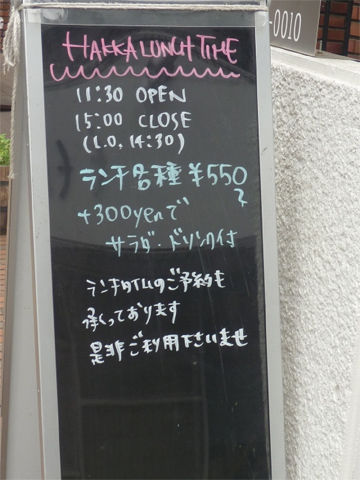 HAKKA LUNCH TIME
11:30 OPEN
15:00 CLOSE
(L.O, 14:30)
ランチ各種 ¥550
~
+300yenで
サラダ・ドリンク付
ランチタイムのご予約も
承くっております
是非ご利用下さいませ
-0010